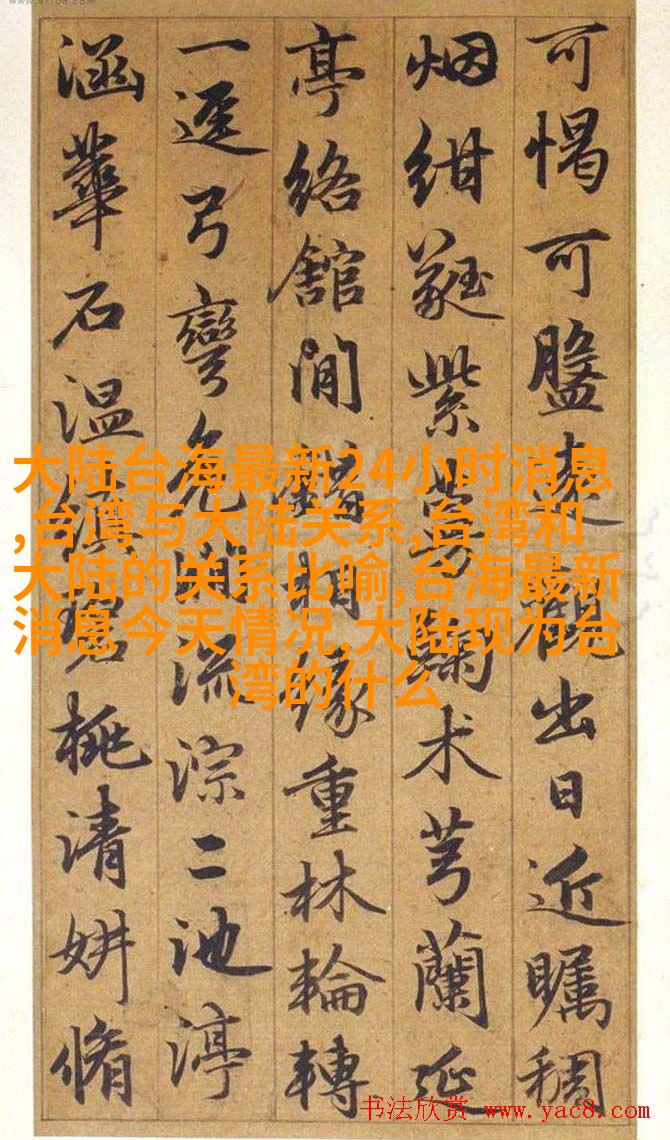 可愒可盤遠觀出日近矚稠
烟紺蕤紫萼斕术芎蘭延
亭絡館閒相緣重林輪轉
一逕弓彎閒流淙二池渟
涵華石温桃清妍脩
大陆台海最新24小时消息
,台湾与大陆关系,台湾和
大陆的关系比喻,台海最新
消息今天情况,大陆现为台
湾的什么
书法欣赏 www.yac8.com